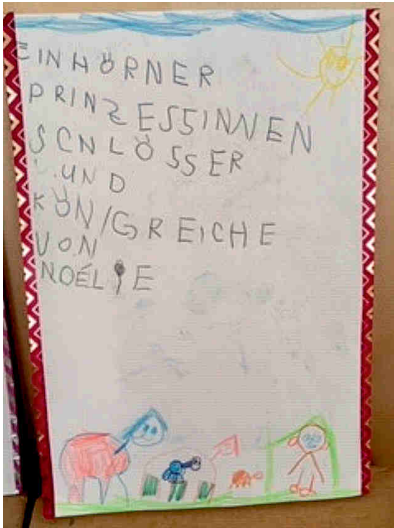 EINHÖRNER
PRINZESSINNEN
SCNLÖSSER
UND
KÖNIGREICHE
VON
NOÉLIE